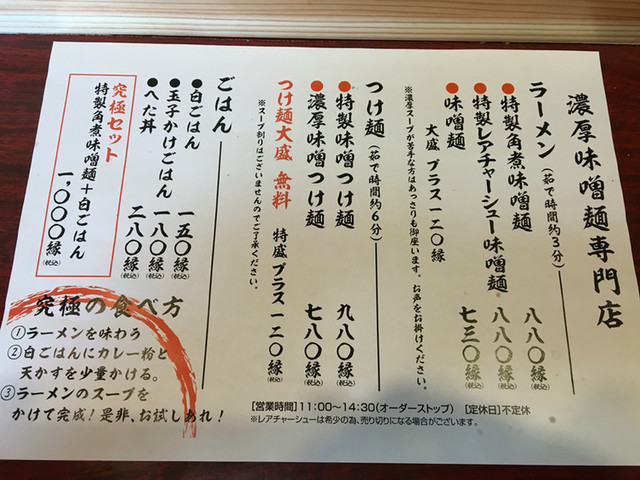 濃厚味噌麺専門店
ラーメン(茹で時間約3分)
●特製角煮味噌麺 八八〇縁(税込)
●特製レアチャーシュー味噌麺 八八〇縁(税込)
●味噌麺 七三〇縁(税込)
大盛 プラス一二〇縁
※濃厚スープが苦手な方はあっさりも御座います。お声をお掛けください。
つけ麺(茹で時間約6分)
●特製味噌つけ麺 九八〇縁(税込)
●濃厚味噌つけ麺 七八〇縁(税込)
つけ麺大盛 無料 特盛 プラス一二〇縁
※スープ割りはございませんのでご了承ください。
ごはん
●白ごはん 一五〇縁(税込)
●玉子かけごはん 一八〇縁(税込)
●へた丼 二八〇縁(税込)
究極セット
特製角煮味噌麺+白ごはん
一,〇〇〇縁(税込)
究極の食べ方
①ラーメンを味わう
②白ごはんにカレー粉と
天かすを少量かける。
③ラーメンのスープを
かけて完成!是非、お試しあれ!
[営業時間]11:00〜14:30(オーダーストップ) [定休日]不定休
※レアチャーシューは希少の為、売り切りになる場合がございます。